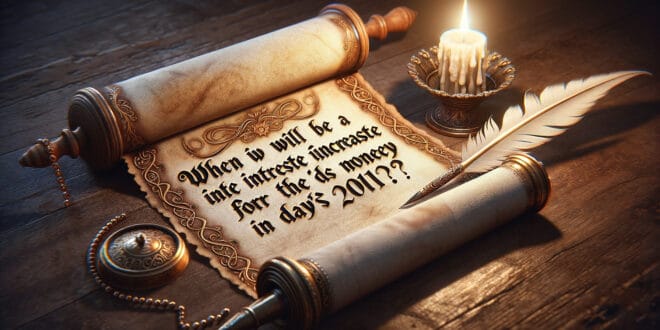 When iv will be a
infe intreste increaste
forr the 'ds moneey
in day's 2011??